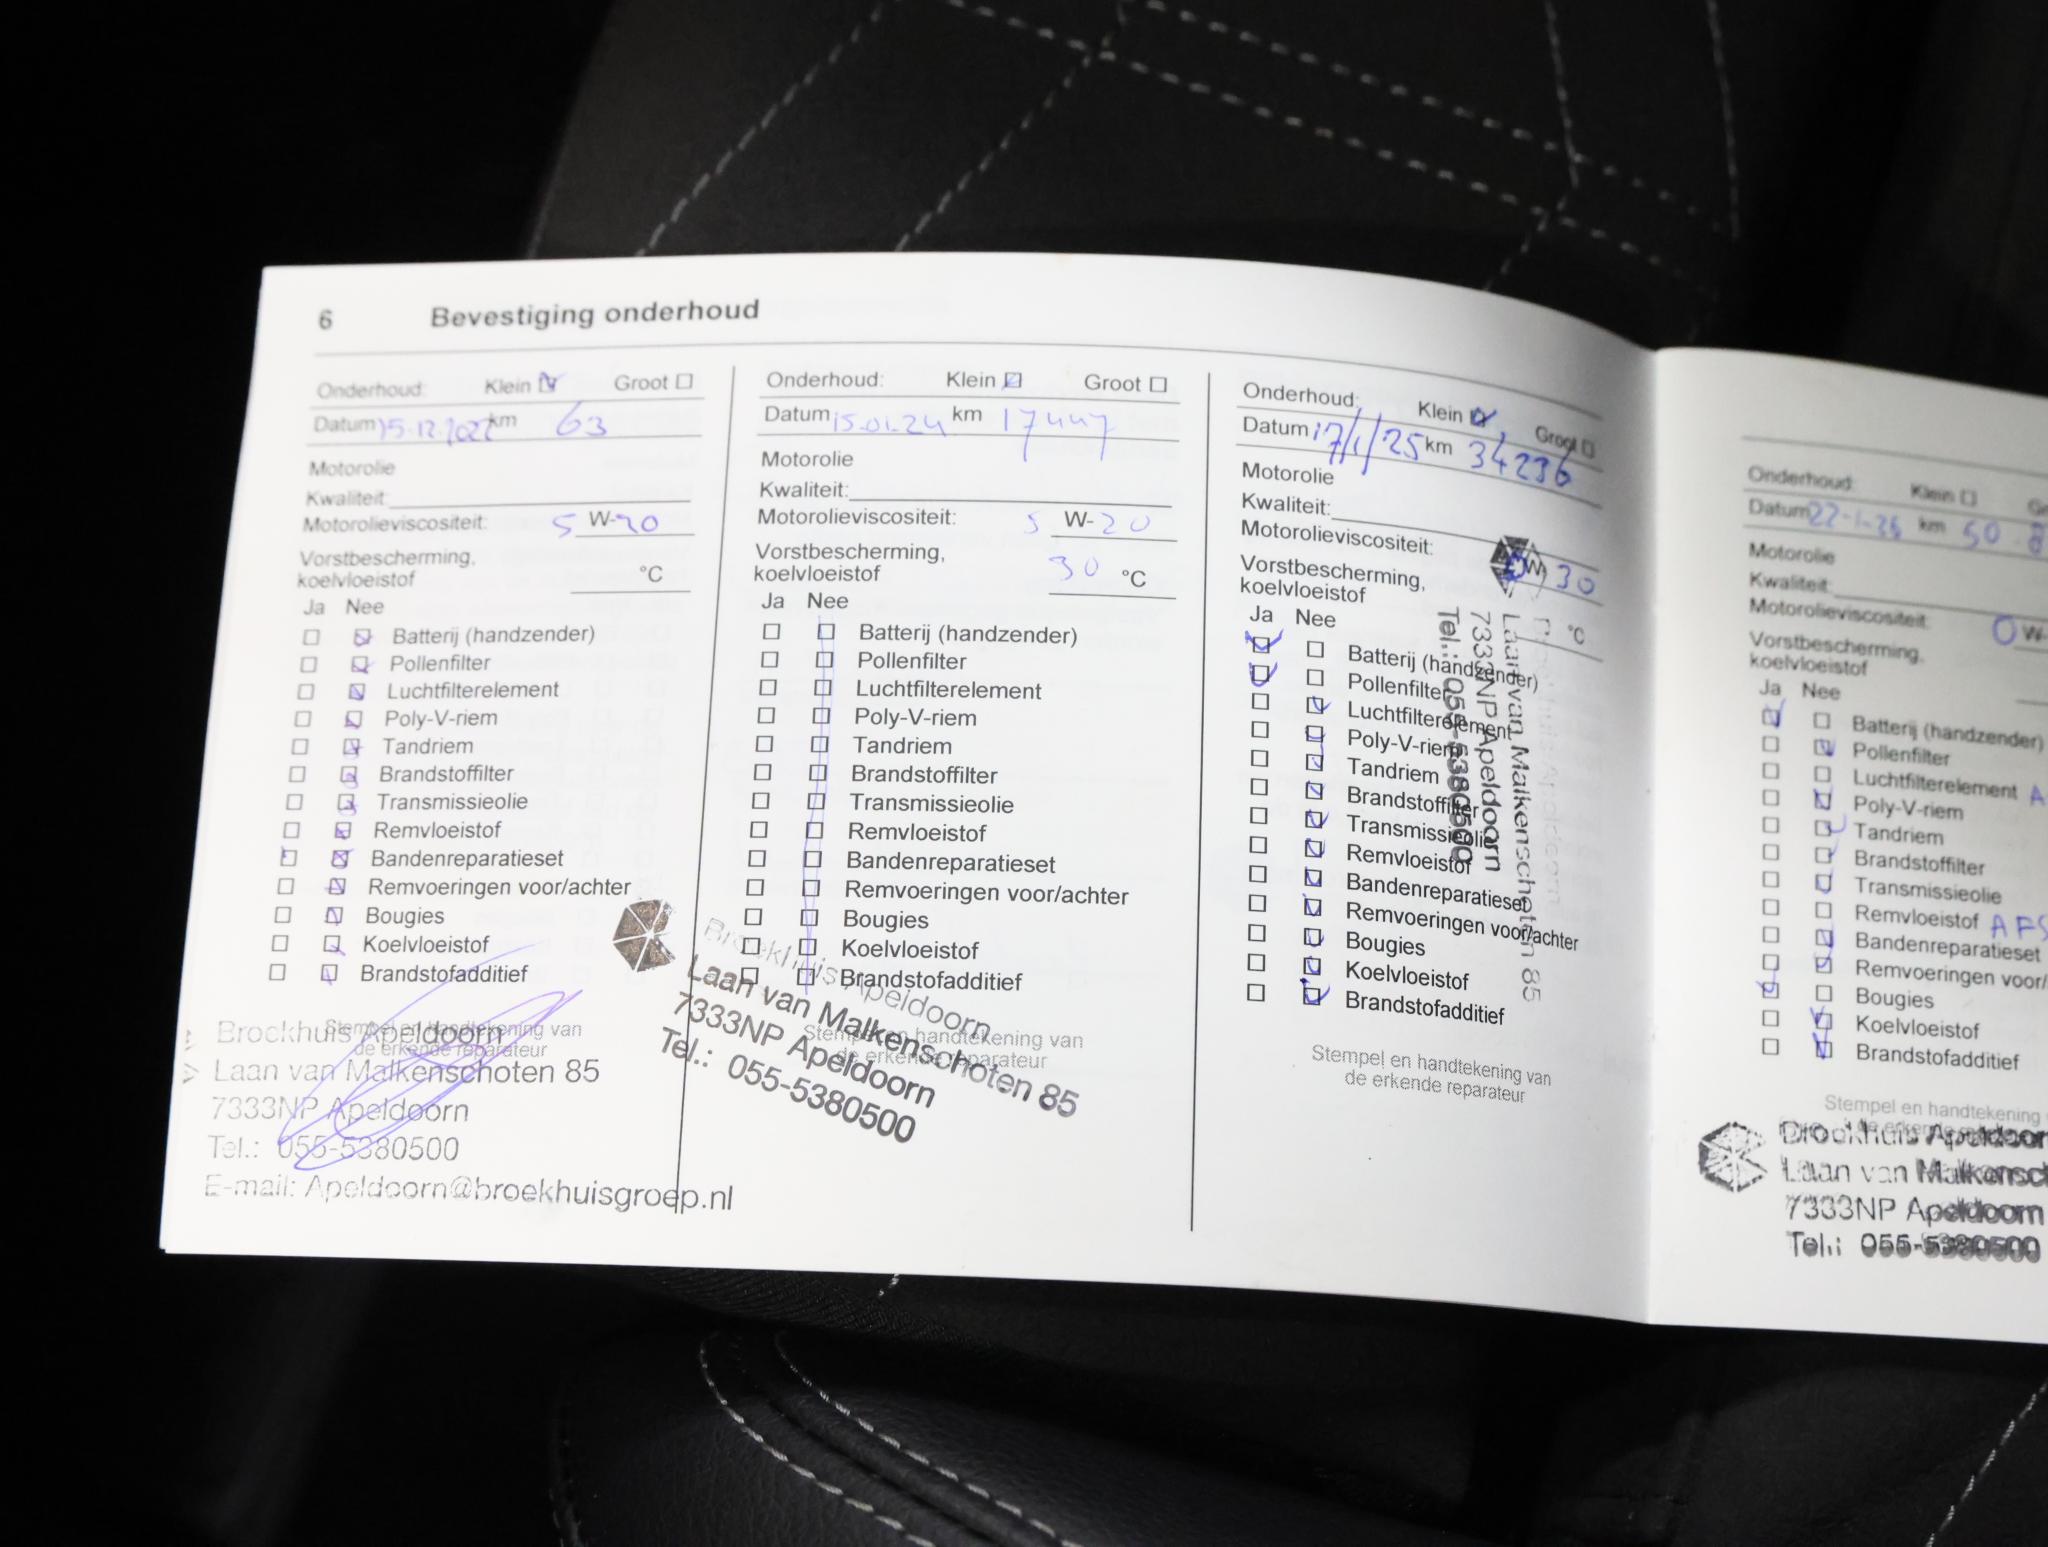 6 Bevestiging onderhoud
Onderhoud: Klein Groot
Datum 15-12-2022 km 63
Motorolie
Kwaliteit:
Motorolieviscositeit: 5 W-20
Vorstbescherming,
koelvloeistof °C
Ja Nee
Batterij (handzender)
Pollenfilter
Luchtfilterelement
Poly-V-riem
Tandriem
Brandstoffilter
Transmissieolie
Remvloeistof
Bandenreparatieset
Remvoeringen voor/achter
Bougies
Koelvloeistof
Brandstofadditief
Stempel en handtekening van
de erkende reparateur
Broekhuis Apeldoorn
Laan van Malkenschoten 85
7333NP Apeldoorn
Tel.: 055-5380500
E-mail: Apeldoorn@broekhuisgroep.nl
Onderhoud: Klein Groot
Datum 15-01-24 km 17447
Motorolie
Kwaliteit:
Motorolieviscositeit: 5 W-20
Vorstbescherming,
koelvloeistof 30 °C
Ja Nee
Batterij (handzender)
Pollenfilter
Luchtfilterelement
Poly-V-riem
Tandriem
Brandstoffilter
Transmissieolie
Remvloeistof
Bandenreparatieset
Remvoeringen voor/achter
Bougies
Koelvloeistof
Brandstofadditief
Stempel en handtekening van
de erkende reparateur
Broekhuis Apeldoorn
Laan van Malkenschoten 85
7333NP Apeldoorn
Tel.: 055-5380500
Onderhoud: Klein Groot
Datum 17/1/25 km 34236
Motorolie
Kwaliteit:
Motorolieviscositeit: W 30
Vorstbescherming,
koelvloeistof °C
Ja Nee
Batterij (handzender)
Pollenfilter
Luchtfilterelement
Poly-V-riem
Tandriem
Brandstoffilter
Transmissieolie
Remvloeistof
Bandenreparatieset
Remvoeringen voor/achter
Bougies
Koelvloeistof
Brandstofadditief
Stempel en handtekening van
de erkende reparateur
Broekhuis Apeldoorn
Laan van Malkenschoten 85
7333NP Apeldoorn
Tel.: 055-5380500
Onderhoud: Klein
Datum 22-1-26 km 50
Motorolie
Kwaliteit:
Motorolieviscositeit: 0 W-
Vorstbescherming,
koelvloeistof
Ja Nee
Batterij (handzender)
Pollenfilter
Luchtfilterelement
Poly-V-riem
Tandriem
Brandstoffilter
Transmissieolie
Remvloeistof
Bandenreparatieset
Remvoeringen voor/
Bougies
Koelvloeistof
Brandstofadditief
Stempel en handtekening
Broekhuis Apeldoorn
Laan van Malkensc
7333NP Apeldoorn
Tel.: 055-5380500